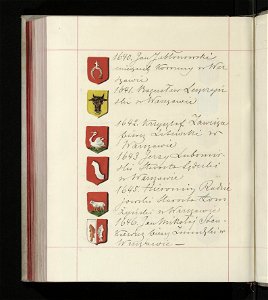 1640. Jan Jabłonowski
miecznik Koronny w War
szawie
1641. Bogusław Leszczyń
ski w Warszawie
1642. Krzysztof Zawisza
Litewski w
Warszawie
1643. Jerzy Lubomir
ski Starosta Sądecki
w Warszawie
1645. Hieronim Radzie
jowski Starosta Łom
żyński w Warszawie
1646. Jan Mikołaj Stan
kiewicz Żmudzki w
Warszawie —